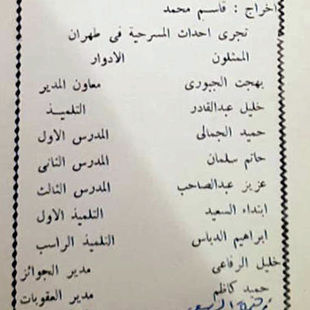 اخراج : قاسم محمد
تجرى احداث المسرحية فى طهران
الممثلون الادوار
بهجت الجبورى معاون المدير
خليل عبدالقادر التلميذ
حميد الجمالى المدرس الاول
حاتم سلمان المدرس الثانى
عزيز عبدالصاحب المدرس الثالث
ابتداء السعيد التلميذ الاول
ابراهيم الدباس التلميذ الراسب
خليل الرفاعى مدير الجوائز
حميد كاظم مدير العقوبات